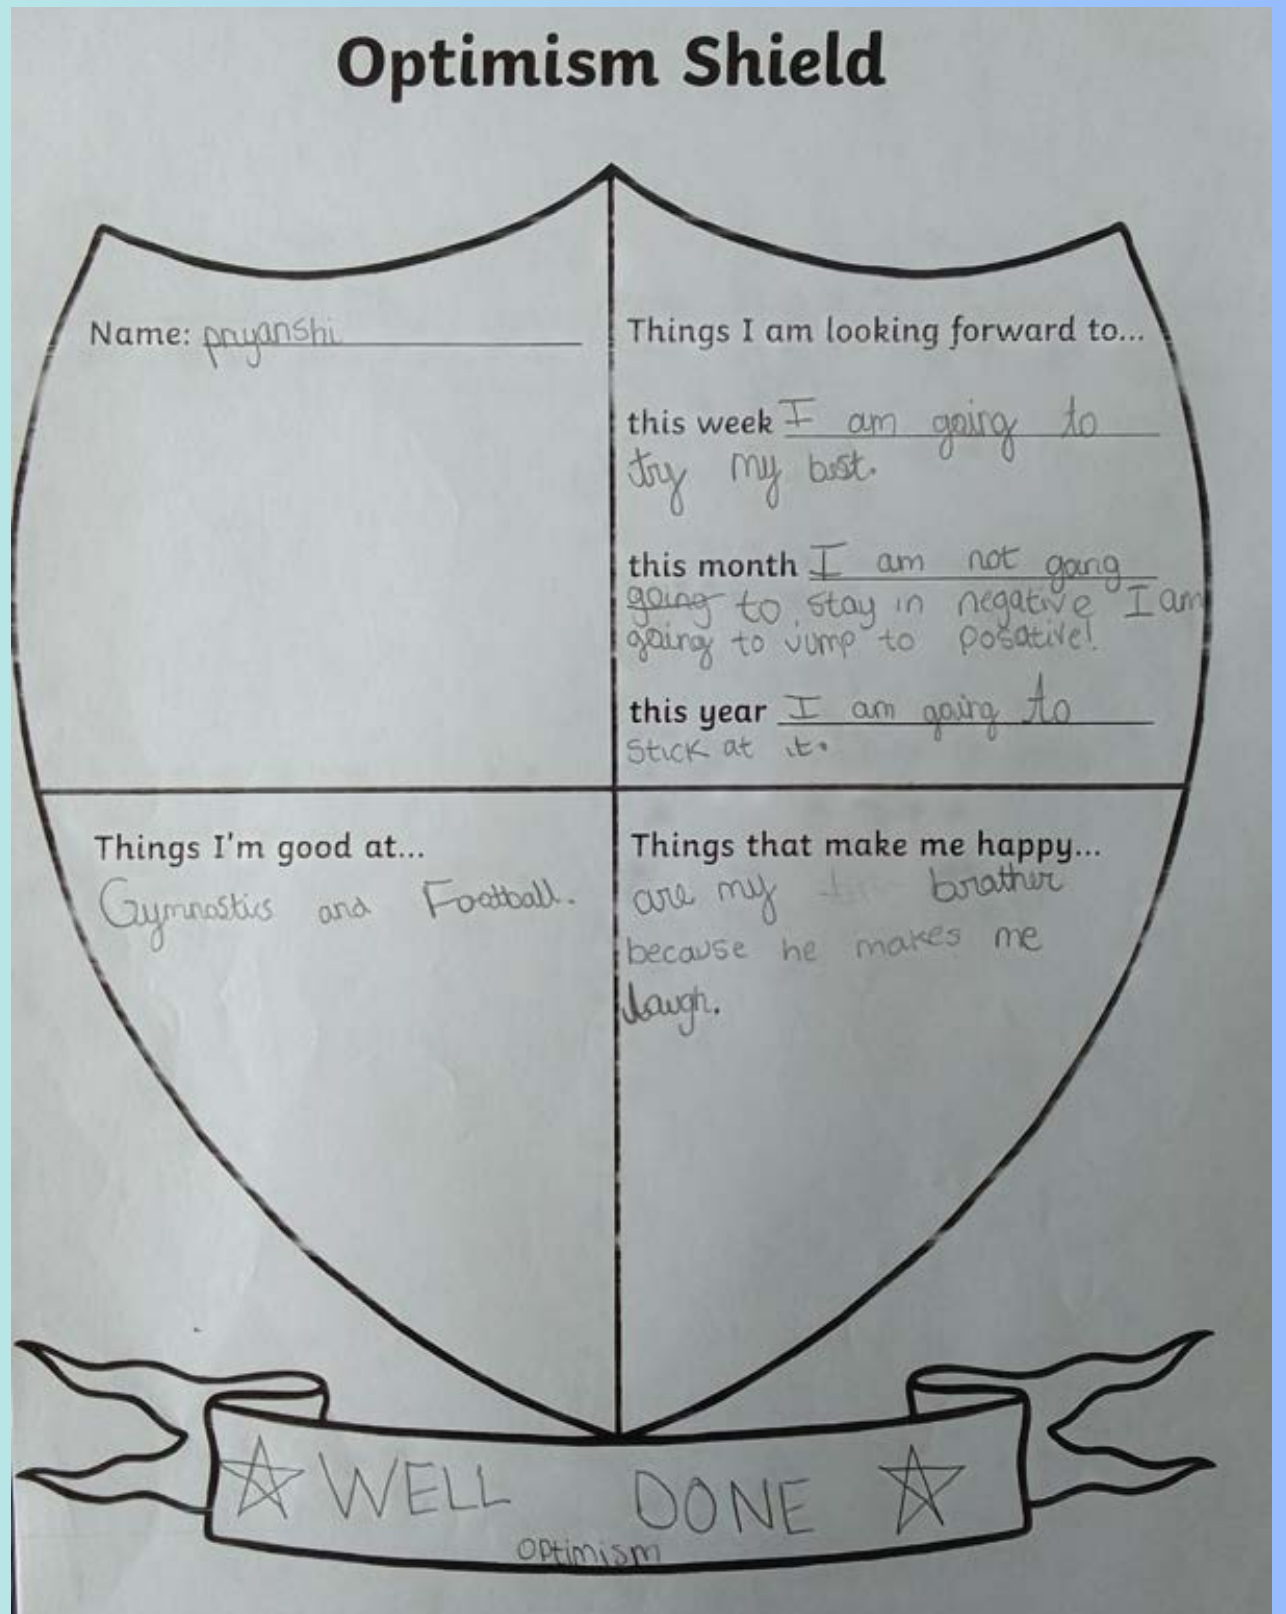 Optimism Shield
Name: pryanshi
Things I am looking forward to...
this week I am going to
try my best.
this month I am not going
going to stay in negative I am
going to jump to posative!
this year I am going to
stick at it.
Things I'm good at...
Gymnastics and Football.
Things that make me happy...
are my brother
because he makes me
laugh.
WELL DONE
optimism